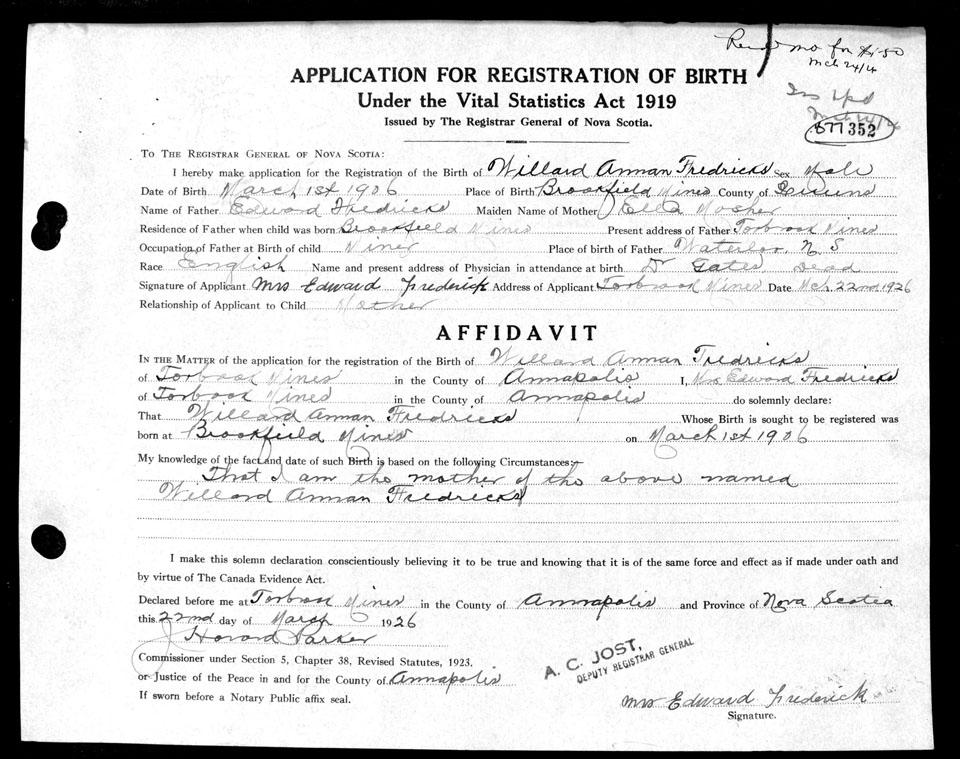 for $1.50
Mch 24/26
APPLICATION FOR REGISTRATION OF BIRTH
Under the Vital Statistics Act 1919
Issued by The Registrar General of Nova Scotia.
877352
TO THE REGISTRAR GENERAL OF NOVA SCOTIA:
I hereby make application for the Registration of the Birth of Willard Annan Fredricks Sex Male
Date of Birth March 1st 1906 Place of Birth Brookfield Mines County of Queens
Name of Father Edward Fredricks Maiden Name of Mother Ella Mosher
Residence of Father when child was born Brookfield Mines Present address of Father Torbrook Mines
Occupation of Father at Birth of child Miner Place of birth of Father Waterloo, N S
Race English Name and present address of Physician in attendance at birth Dr Gates Dead
Signature of Applicant Mrs Edward Frederick Address of Applicant Torbrook Mines Date Mch. 22nd 1926
Relationship of Applicant to Child Mother
AFFIDAVIT
IN THE MATTER of the application for the registration of the Birth of Willard Annan Fredricks
of Torbrook Mines in the County of Annapolis I, Mrs Edward Fredricks
of Torbrook Mines in the County of Annapolis do solemnly declare:
That Willard Annan Fredricks Whose Birth is sought to be registered was
born at Brookfield Mines on March 1st 1906
My knowledge of the fact and date of such Birth is based on the following Circumstances:
That I am the mother of the above named
Willard Annan Fredricks
I make this solemn declaration conscientiously believing it to be true and knowing that it is of the same force and effect as if made under oath and
by virtue of The Canada Evidence Act.
Declared before me at Torbrook Mines in the County of Annapolis and Province of Nova Scotia
this 22nd day of March 1926
Howard Parker
Commissioner under Section 5, Chapter 38, Revised Statutes, 1923.
or Justice of the Peace in and for the County of Annapolis
If sworn before a Notary Public affix seal.
A. C. JOST,
DEPUTY REGISTRAR GENERAL
Mrs Edward Frederick
Signature.